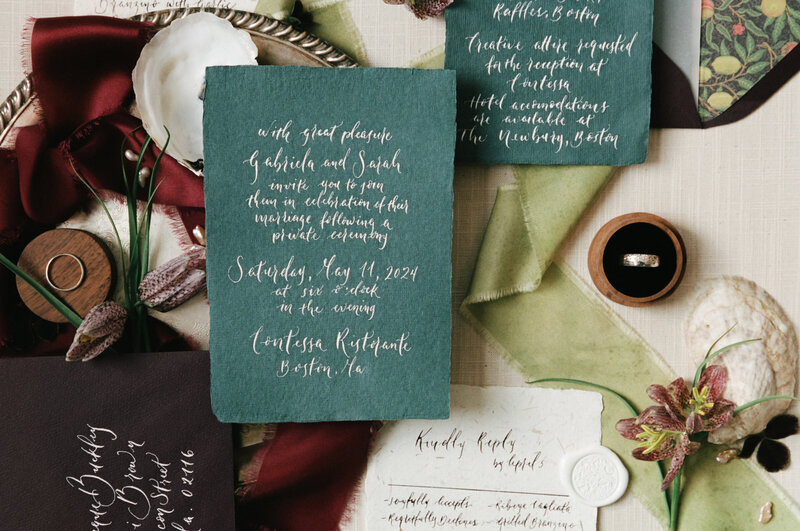 Branzino with Garlic
Raffles, Boston
Creative attire requested
for the reception at
Contessa
Hotel accomodations
are available at
The Newbury, Boston
with great pleasure
Gabriela and Sarah
invite you to join
them in celebration of their
marriage following a
private ceremony
Saturday, May 11, 2024
at six o'clock
in the evening
Contessa Ristorante
Boston, Ma
Buckley
Brown
Street
Ma. 02116
Kindly Reply
by April 5
Joyfully Accepts
Regretfully Declines
Ribeye Tagliata
Grilled Branzino